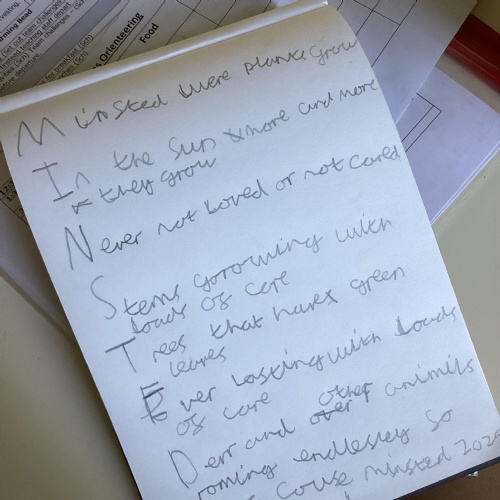 Orienteering
Food
Minsted were plants grow
In the sun more and more
they grow
Never not loved or not cared
Stems gorowing with
loads of care
Trees that haves green
leaves
Ever lasting with loads
of care
Derr and other animils
roming endlesley so
Couse minsted